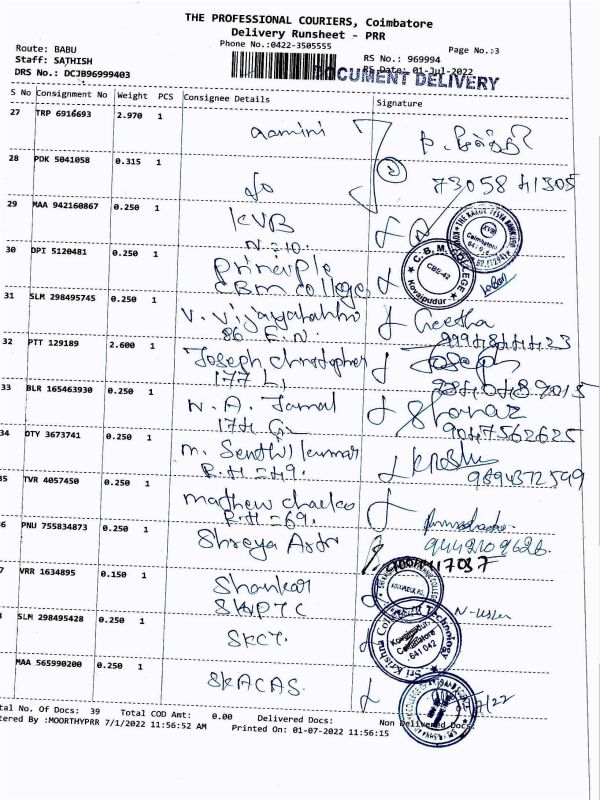 THE PROFESSIONAL COURIERS, Coimbatore
Delivery Runsheet - PRR
Phone No.:0422-3505555
Page No.:3
Route: BABU
Staff: SATHISH
DRS No.: DCJB96999403
RS No.: 969994
RS Date: 01-Jul-2022
DOCUMENT DELIVERY
S No Consignment No Weight PCS Consignee Details Signature
27 TRP 6916693 2.970 1
28 PDK 5041058 0.315 1
2
73058 41305
29 MAA 942160867 0.250 1 KVB
N-210.
30 DPI 5120481 0.250 1 principle
CBM College
C. B. M. COLLEGE
Kovaipudur
CBE-42
31 SLM 298495745 0.250 1 Geetha
86 E.N.
32 PTT 129189 2.600 1 Joseph christopher Joseph
177 L,
33 BLR 165463930 0.250 1 N. A. Jamal Shanaz
9047562625
34 OTY 3673741 0.250 1 m. Senthil kumar
R.H - 49. 9894372599
35 TVR 4057450 0.250 1 mathew chacko
R.H - 69. 9442109626
36 PNU 755834873 0.250 1 Shreya Astr
37 VRR 1634895 0.150 1 Shankar
SKVPTC
38 SLM 298495428 0.250 1 SKCT.
Sri Krishna College of Technology
Kovaipudur,
Coimbatore
641 042
MAA 565990200 0.250 1 SKACAS
Total No. Of Docs: 39 Total COD Amt: 0.00 Delivered Docs: Non Delivered Docs:
Entered By :MOORTHYPRR 7/1/2022 11:56:52 AM Printed On: 01-07-2022 11:56:15